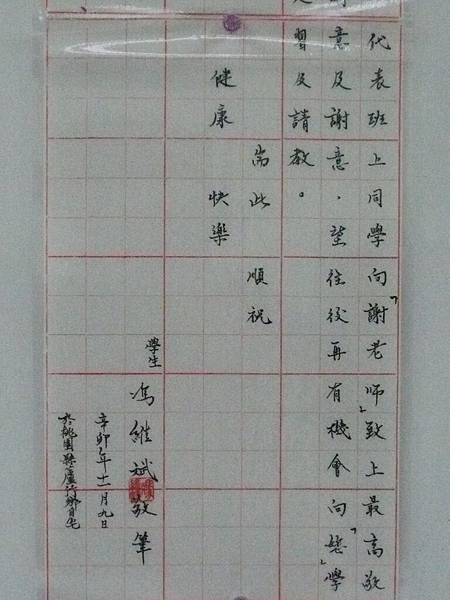 代表班上同學向「謝老師」致上最高敬
意及謝意，望往後再有機會向「您」學
習及請教。
耑此 順祝
健康 快樂
學生 馮維斌 敬筆
辛卯年十一月九日
於桃園縣蘆竹鄉自宅